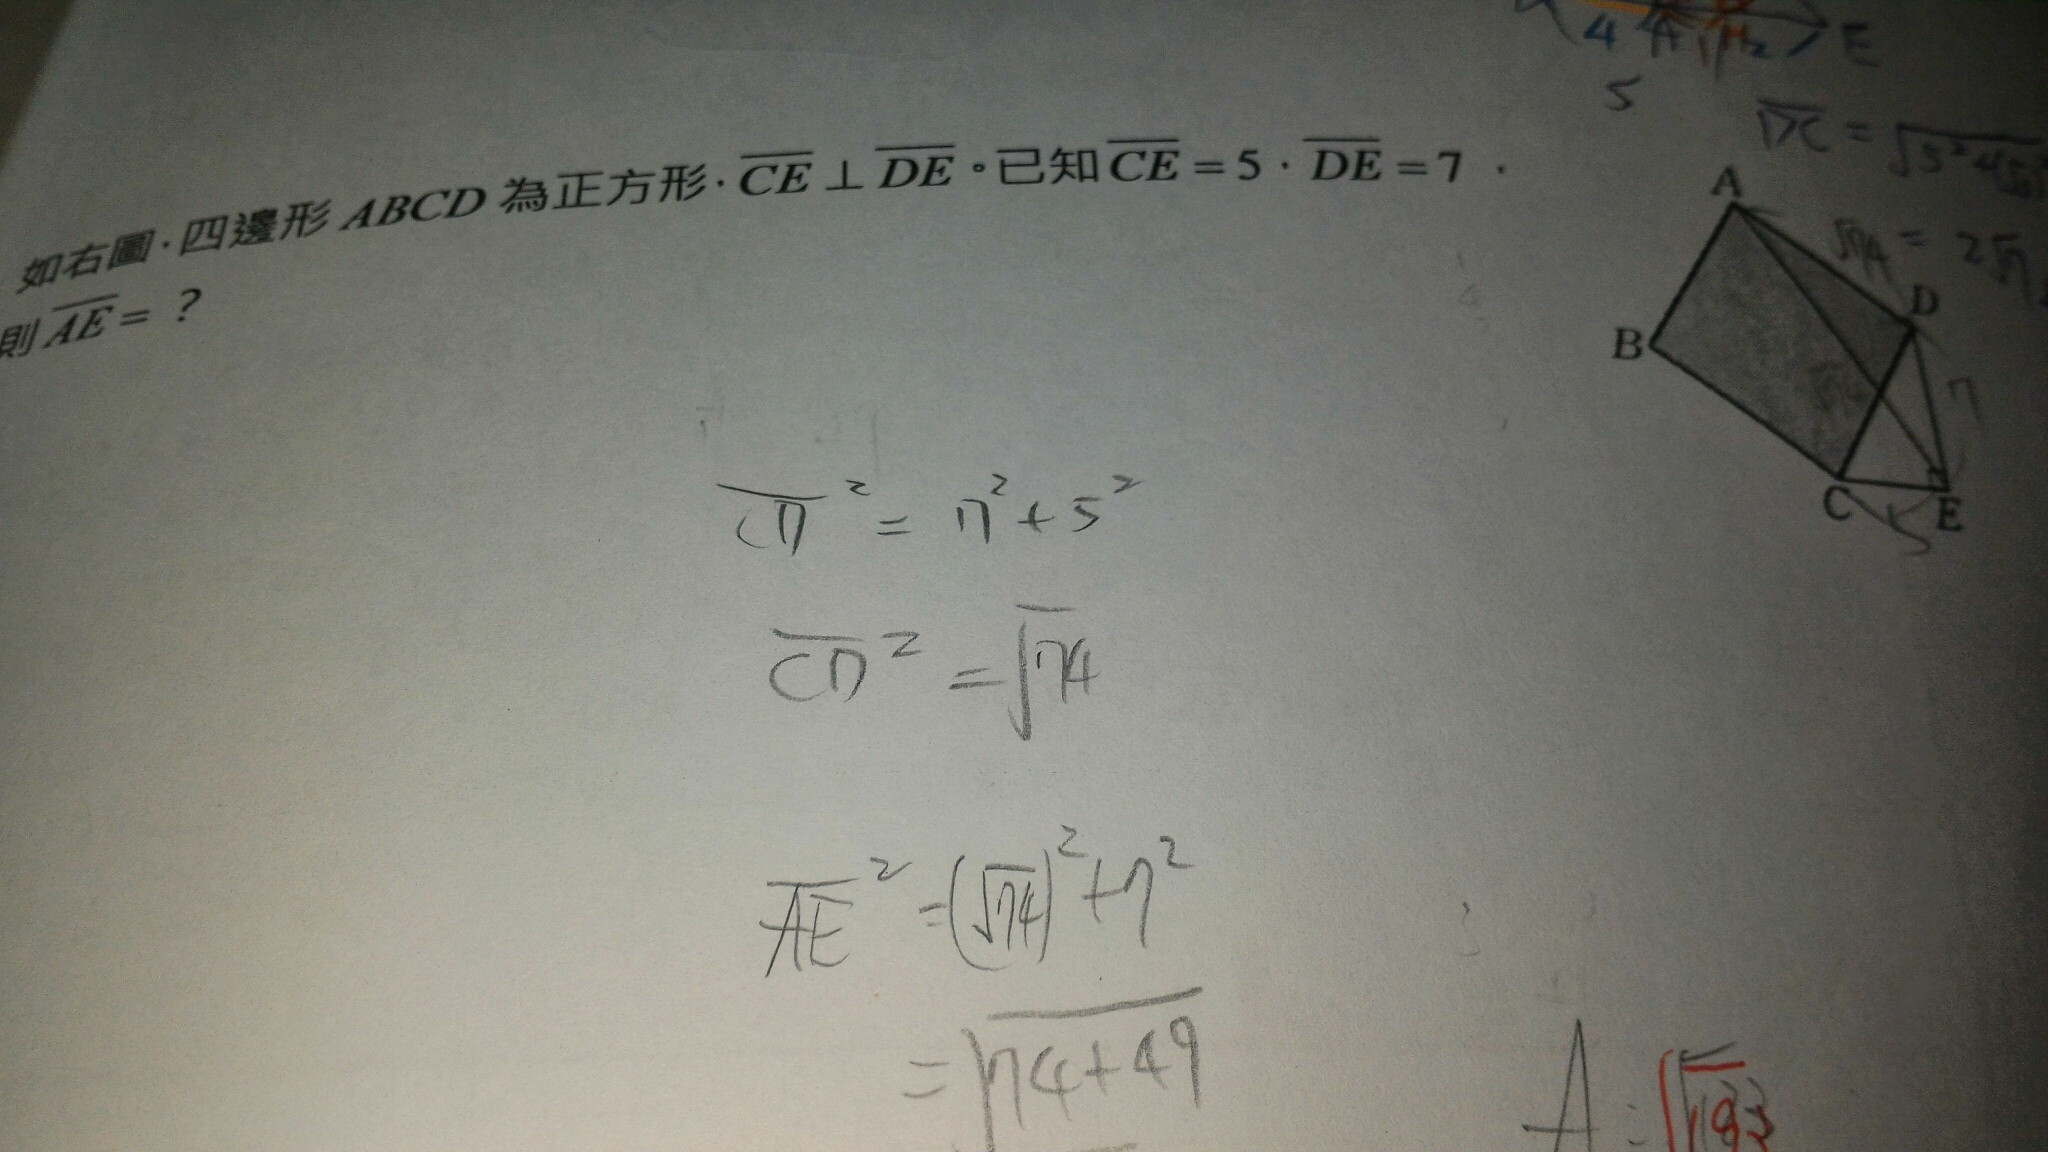 4 E
5
DC = √5²+
如右圖,四邊形 ABCD 為正方形,CE⊥DE。已知CE=5,DE=7,
則 AE= ?
A
√74 = 2√
D
B
7
C E
5
CD² = 7²+5²
CD² = √74
AE² = (√74)²+7²
= √74+49
A =